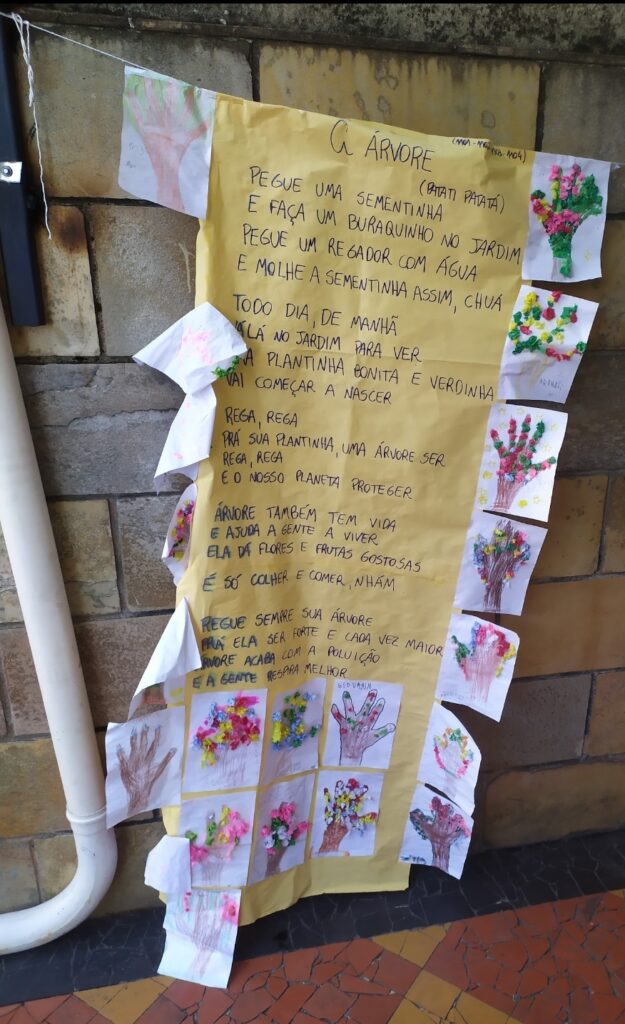 A ÁRVORE
(PATATI PATATÁ)
PEGUE UMA SEMENTINHA
E FAÇA UM BURAQUINHO NO JARDIM
PEGUE UM REGADOR COM ÁGUA
E MOLHE A SEMENTINHA ASSIM, CHUÁ
TODO DIA, DE MANHÃ
VÁ LÁ NO JARDIM PARA VER
A PLANTINHA BONITA E VERDINHA
VAI COMEÇAR A NASCER
REGA, REGA
PRÁ SUA PLANTINHA, UMA ÁRVORE SER
REGA, REGA
E O NOSSO PLANETA PROTEGER
ÁRVORE TAMBÉM TEM VIDA
E AJUDA A GENTE A VIVER
ELA DÁ FLORES E FRUTAS GOSTOSAS
É SÓ COLHER E COMER, NHÁM
REGUE SEMPRE SUA ÁRVORE
PRÁ ELA SER FORTE E CADA VEZ MAIOR
ÁRVORE ACABA COM A POLUIÇÃO
E A GENTE RESPIRA MELHOR